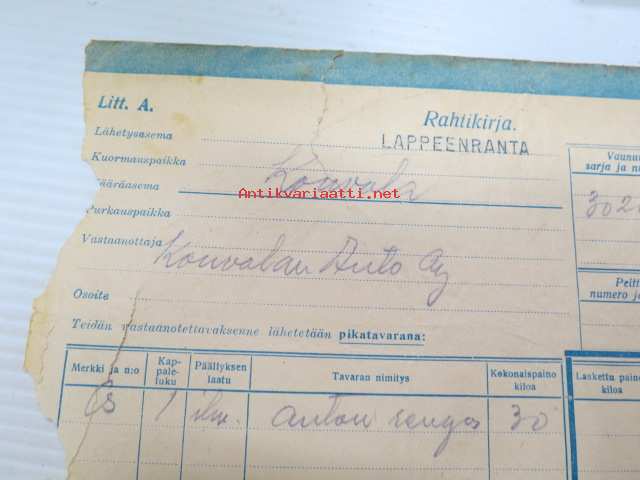 Litt. A.
Rahtikirja.
Lähetysasema LAPPEENRANTA
Kuormauspaikka
Vaunu
sarja ja nu
Määräasema Kouvola
Antikvariaatti.net
302
Purkauspaikka
Vastaanottaja Kouvolan Auto Oy
Peitt
numero ja
Osoite
Teidän vastaanotettavaksenne lähetetään pikatavarana:
Merkki ja n:o Kap-paleluku Päällyksen laatu Tavaran nimitys Kokonaispaino kiloa Laskettu paino kiloa
1 ilm. auton rengas 30